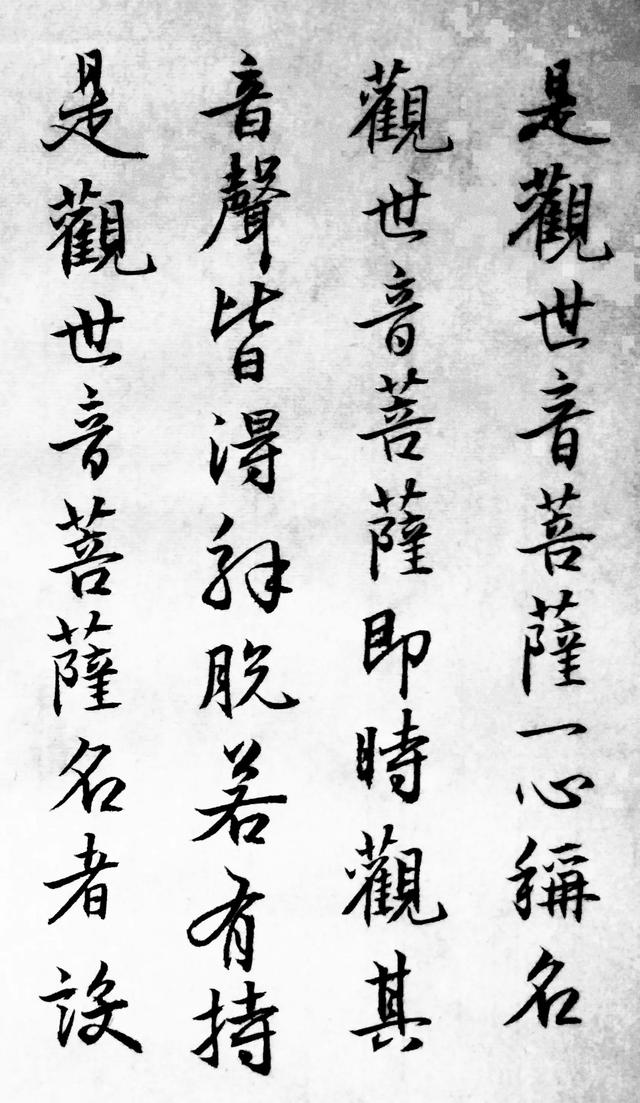 是觀世音菩薩一心稱名
觀世音菩薩即時觀其
音聲皆得解脫若有持
是觀世音菩薩名者設